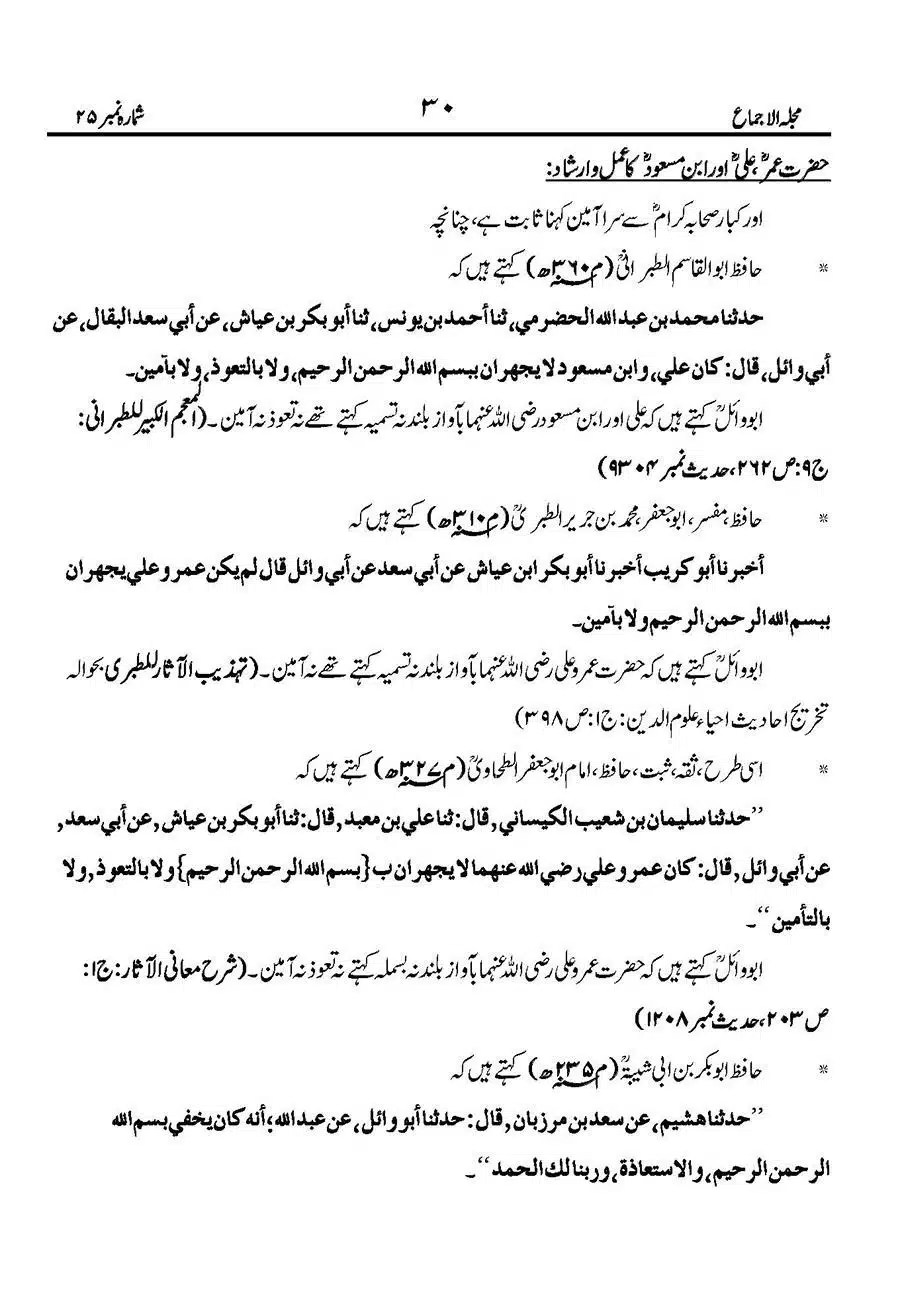 مجلہ الاجماع ۳۰ شمارہ نمبر ۲۵
حضرت عمرؓ، علیؓ اور ابن مسعودؓ کا عمل و ارشاد:
اور کبار صحابہ کرامؓ سے سراً آمین کہنا ثابت ہے، چنانچہ
* حافظ ابوالقاسم الطبرانیؒ (م۳۶۰ھ) کہتے ہیں کہ
حدثنا محمد بن عبد الله الحضرمي، ثنا أحمد بن يونس، ثنا أبو بكر بن عياش، عن أبي سعد البقال، عن
أبي وائل، قال: كان علي، وابن مسعود لا يجهران ببسم الله الرحمن الرحيم، ولا بالتعوذ، ولا بآمين۔
ابو وائلؒ کہتے ہیں کہ علی اور ابن مسعود رضی اللہ عنہما بآواز بلند نہ تسمیہ کہتے تھے نہ تعوذ نہ آمین۔ (المعجم الکبیر للطبرانی:
ج۹: ص۲۶۲، حدیث نمبر ۹۳۰۴)
* حافظ، مفسر، ابو جعفر، محمد بن جریر الطبریؒ (م۳۱۰ھ) کہتے ہیں کہ
أخبرنا أبو كريب أخبرنا أبو بكر ابن عياش عن أبي سعد عن أبي وائل قال لم يكن عمر و علي يجهران
ببسم الله الرحمن الرحيم ولا بآمين۔
ابو وائلؒ کہتے ہیں کہ حضرت عمر و علی رضی اللہ عنہما بآواز بلند نہ تسمیہ کہتے تھے نہ آمین۔ (تہذیب الآثار للطبری بحوالہ
تخریج احادیث احیاء علوم الدین: ج۱: ص۳۹۸)
* اسی طرح، ثقہ، ثبت، حافظ، امام ابو جعفر الطحاویؒ (م۳۲۷ھ) کہتے ہیں کہ
”حدثنا سليمان بن شعيب الكيساني, قال: ثنا علي بن معبد, قال: ثنا أبو بكر بن عياش, عن أبي سعد,
عن أبي وائل, قال: كان عمر و علي رضي الله عنهما لا يجهران ب {بسم الله الرحمن الرحيم} ولا بالتعوذ, ولا
بالتأمين“۔
ابو وائلؒ کہتے ہیں کہ حضرت عمر و علی رضی اللہ عنہما بآواز بلند نہ بسملہ کہتے نہ تعوذ نہ آمین۔ (شرح معانی الآثار: ج۱:
ص۲۰۳، حدیث نمبر ۱۲۰۸)
* حافظ ابو بکر بن ابی شیبۃؒ (م۲۳۵ھ) کہتے ہیں کہ
”حدثنا هشيم، عن سعد بن مرزبان, قال: حدثنا أبو وائل، عن عبد الله؛ أنه كان يخفي بسم الله
الرحمن الرحيم، والاستعاذة، وربنا لك الحمد“۔